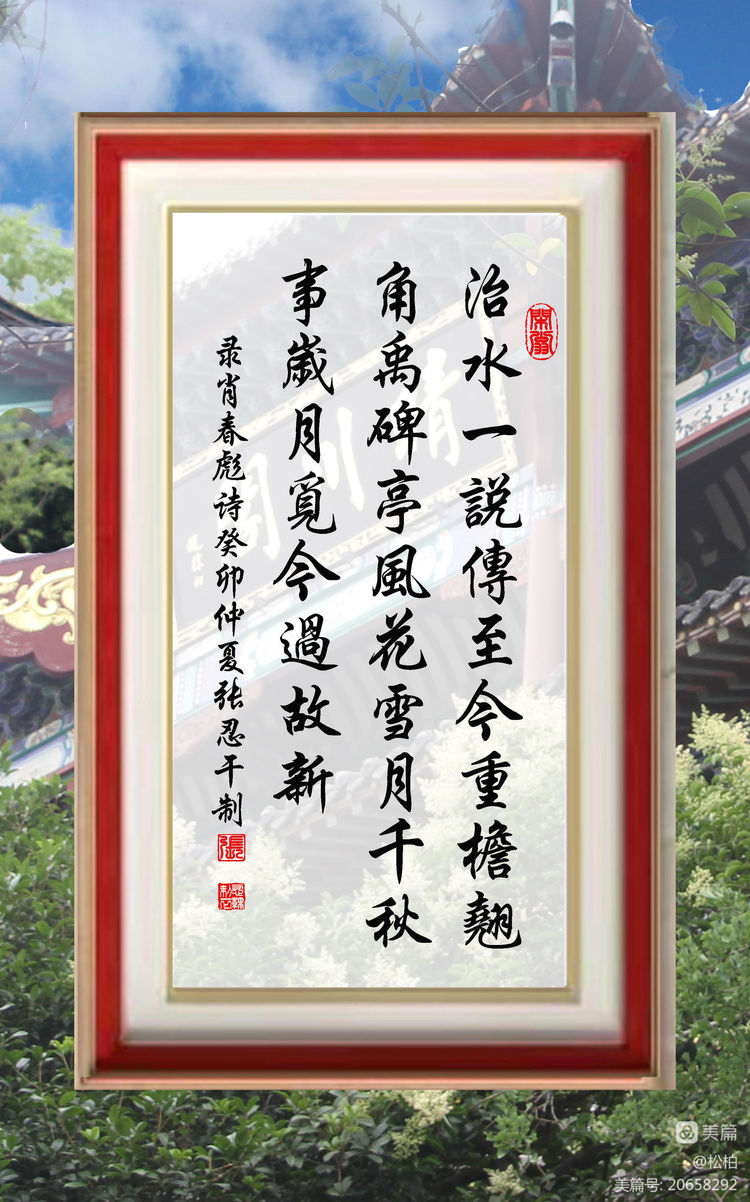 治水一説傳至今重檐翹
角禹碑亭風花雪月千秋
事歲月覓今過故新
录肖春彪诗癸卯仲夏张忍干制
張
晴川阁
美篇
@松柏
美篇号: 20658292